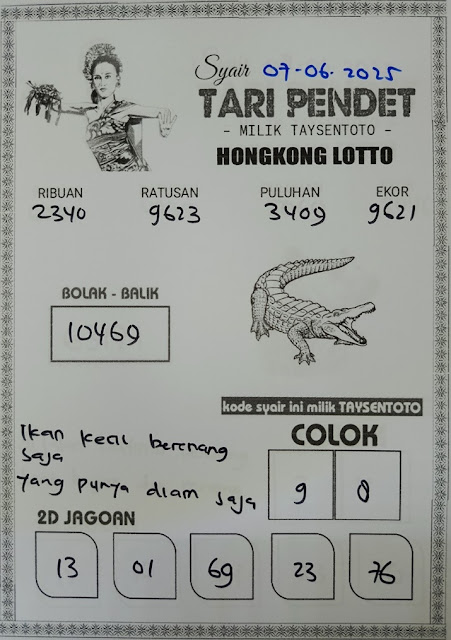 Syair 07-06-2025
TARI PENDET
- MILIK TAYSENTOTO -
HONGKONG LOTTO
RIBUAN RATUSAN PULUHAN EKOR
2340 9623 3409 9621
BOLAK - BALIK
10469
kode syair ini milik TAYSENTOTO
Ikan kecil berenang
saja
yang punya diam saja
COLOK
9 0
2D JAGOAN
13 01 69 23 76